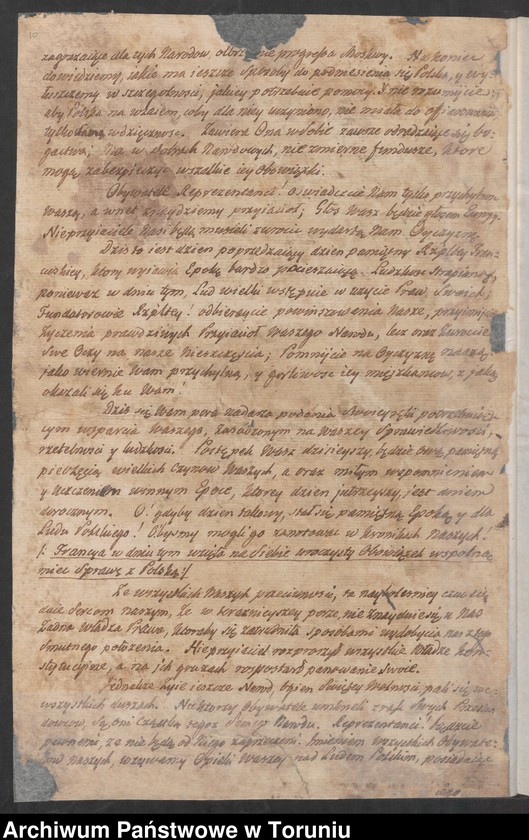 zagrażaiące dla tych Narodow, olbrzymie progressa Moskwy. Nakoniec
dowiedziemy, jakie ma ieszcze sposoby do podniesienia się Polska, y wy-
w szczegulności, jakiey potrzebuie pomocy. I nie
aby Polska na wzaiem, coby dla niey uczyniono, nie miała do
tylko wdzięczność. Zawiera Ona w sobie zawsze odradzaiące się bo-
gactwa; Ma w dobrach Narodowych, niezmierne fundusze, ktore
mogą zabezpieczyć wszelkie iey obowiązki.
Obywatele Reprezentanci! oświadczcie Nam tylko przychylność
waszą, a wnet znaydziemy przyiacioł; Głos Wasz będzie głosem Europy.
Nieprzyiaciele Nasi będą musieli zwrocić wydartą Nam Oyczyznę.
Dziś to iest dzien poprzedzaiący dzien pamiętny Rzpltey Fran-
cuskiey, ktory wyiawia Epokę bardzo pocieszaiącą Ludzkość strapioną,
ponieważ w dniu tym, Lud wielki wstąpił w użycie Praw Swoich;
Fundatorowie Rzpltey! odbieraycie powinszowania Nasze, przyimiycie
życzenia prawdziwych Przyiacioł Waszego Narodu, lecz oraz zwroćcie
Swe Oczy na nasze Nieszczęścia; Pomniycie na Oyczyznę naszą,
jako wiernie Wam przychylną, y gorliwość iey mięszkancow, z jaką
okazali się ku Wam!
Dziś się Wam pora nadarza podania Swoiey ręki potrzebuią-
cym wsparcia Waszego, zasadzonym na Waszey Sprawiedliwości,
rzetelności y ludzkości. Postępek Wasz dzisieyszy, będzie
pieczęcią wielkich Czynow Waszych, a oraz miłym wspomnieniem
y Uczczeniem winnym Epoce, ktorey dzien jutrzeyszy, jest dniem
dorocznym. O! gdyby dzien takowy, stał się pamiętną Epoką y dla
Ludu Polskiego! Obyśmy mogli go zanotować w Kronikach Naszych!
/: Francya w dniu tym wzięła na Siebie uroczysty Obowiązek wspolną
mieć Sprawę z Polską:/
Ze wszystkich Naszych przeciwności, ta naybolesniey czuć się
daie Sercom naszym, że w teraznieyszey porze, nie znayduie się u Nas
Żadna Władza Prawa, ktoraby się zatrudniła sposobami wydobycia nas z tego
smutnego położenia. Nieprzyiaciel rozproszył wszystkie Władze Kon-
stytucyine, a na ich gruzach rozpostarł panowanie Swoie.
Jednakże żyie ieszcze Narod, ogien Swiętey Wolności, pali się we
wszystkich duszach. Niektorzy Obywatele umkneli z rąk Swych Przesla-
dowcow, Są oni Cząstką tegoż Narodu. Reprezentanci! bądzcie
pewnemi, że nie będą od Niego zaprzeczeni. Imieniem wszystkich Obywate-
low Naszych, wzywamy Opieki Waszey nad Ludem Polskim,
Archiwum Państwowe w Toruniu